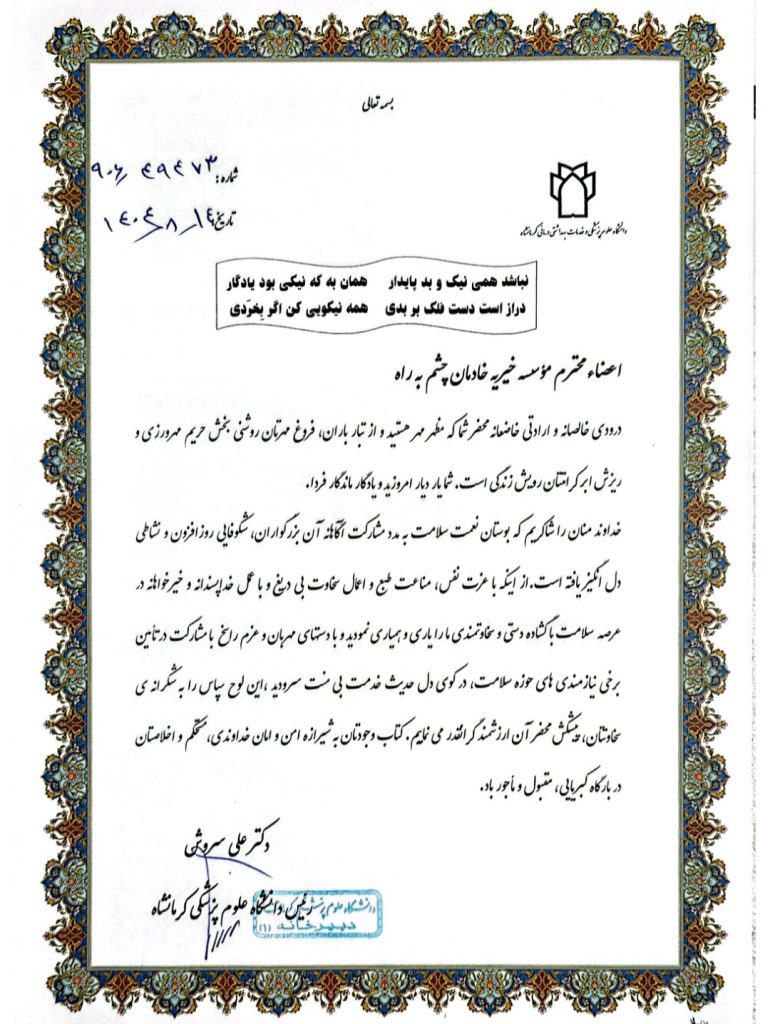 بسمه تعالی
شماره: ۹۰۶/۴۹۴۷۳
تاریخ: ۱۴۰۴/۸/۱۴
دانشگاه علوم پزشکی و خدمات بهداشتی درمانی کرمانشاه
نباشد همی نیک و بد پایدار همان به که نیکی بود یادگار
دراز است دست فلک بر بدی همه نیکویی کن اگر بِخرَدی
اعضاء محترم مؤسسه خیریه خادمان چشم به راه
درودی خالصانه و ارادتی خاضعانه محضر شما که مظهر مهر هستید و از تبار باران، فروغ مهرتان روشنی بخش حریم مهرورزی و
ریزش ابر کرامتتان رویش زندگی است. شما یار دیار امروزید و یادگار ماندگار فردا.
خداوند منان را شاکریم که بوستان نعمت سلامت به مدد مشارکت آگاهانه آن بزرگواران، شکوفایی روزافزون و نشاطی
دل انگیز یافته است. از اینکه با عزت نفس، مناعت طبع و اعمال سخاوت بی دریغ و با عمل خداپسندانه و خیرخواهانه در
عرصه سلامت با گشاده دستی و سخاوتمندی ما را یاری و همیاری نمودید و با دستهای مهربان و عزم راسخ با مشارکت در تأمین
برخی نیازمندی های حوزه سلامت، در کوی دل حدیث خدمت بی منت سرودید ،این لوح سپاس را به شکرانه ی
سخاوتتان، پیشکش محضر آن ارزشمند گرانقدر می نمایم. کتاب وجودتان به شیرازه امن و امان خداوندی، مستحکم و اخلاصتان
در بارگاه کبریایی، مقبول و مأجور باد.
دکتر علی سروش
رئیس دانشگاه علوم پزشکی کرمانشاه
دانشگاه علوم پزشکی
دبیرخانه (۱)